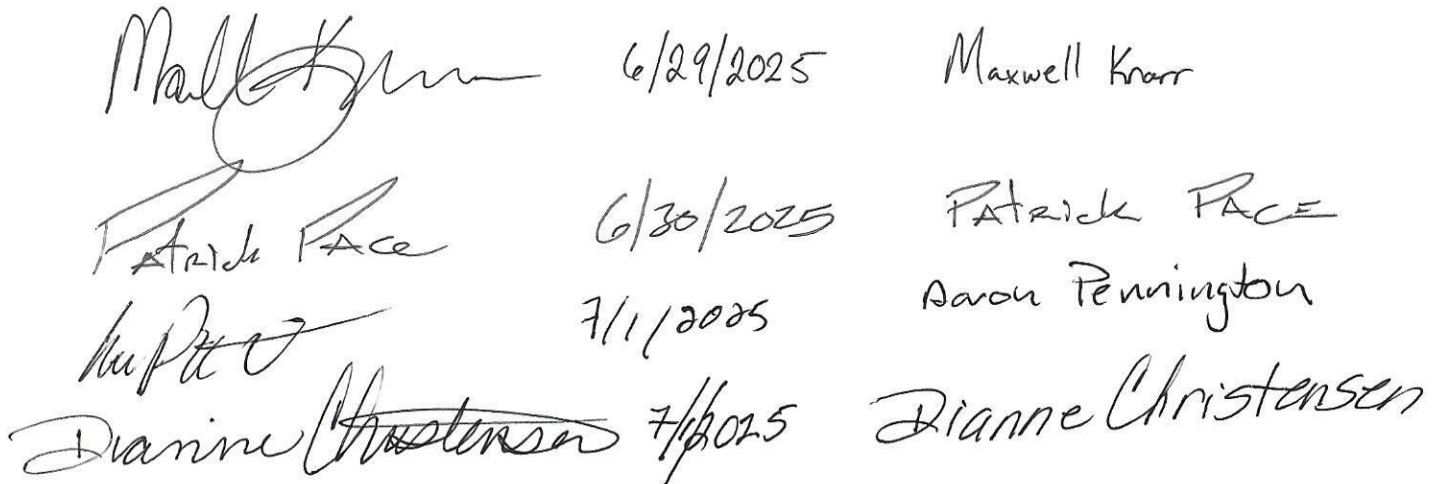 6/29/2025 Maxwell Knarr
Patrick PAce 6/30/2025 PAtrick PACE
7/1/2025 Aaron Pennington
Dianne Christensen 7/1/2025 Dianne Christensen